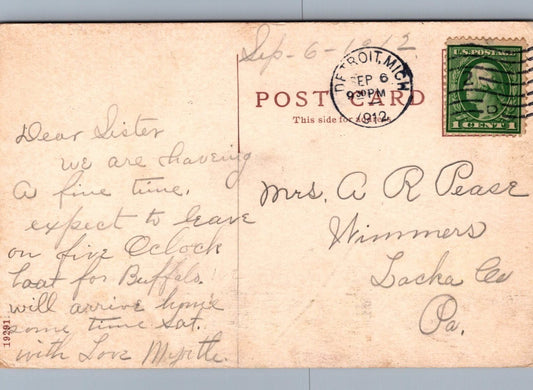 Sep-6-1912
U.S. POSTAGE
DETROIT, MICH
SEP 6
9 30 PM
1912
1 CENT 1
POST CARD
This side for address
Dear Sister
we are haveing
a fine time.
expect to leave
on five Oclock
boat for Buffalo.
will arrive home
some time Sat.
with Love Myrtle.
Mrs. A R Pease
Wimmers
Lacka Co
Pa.
19291